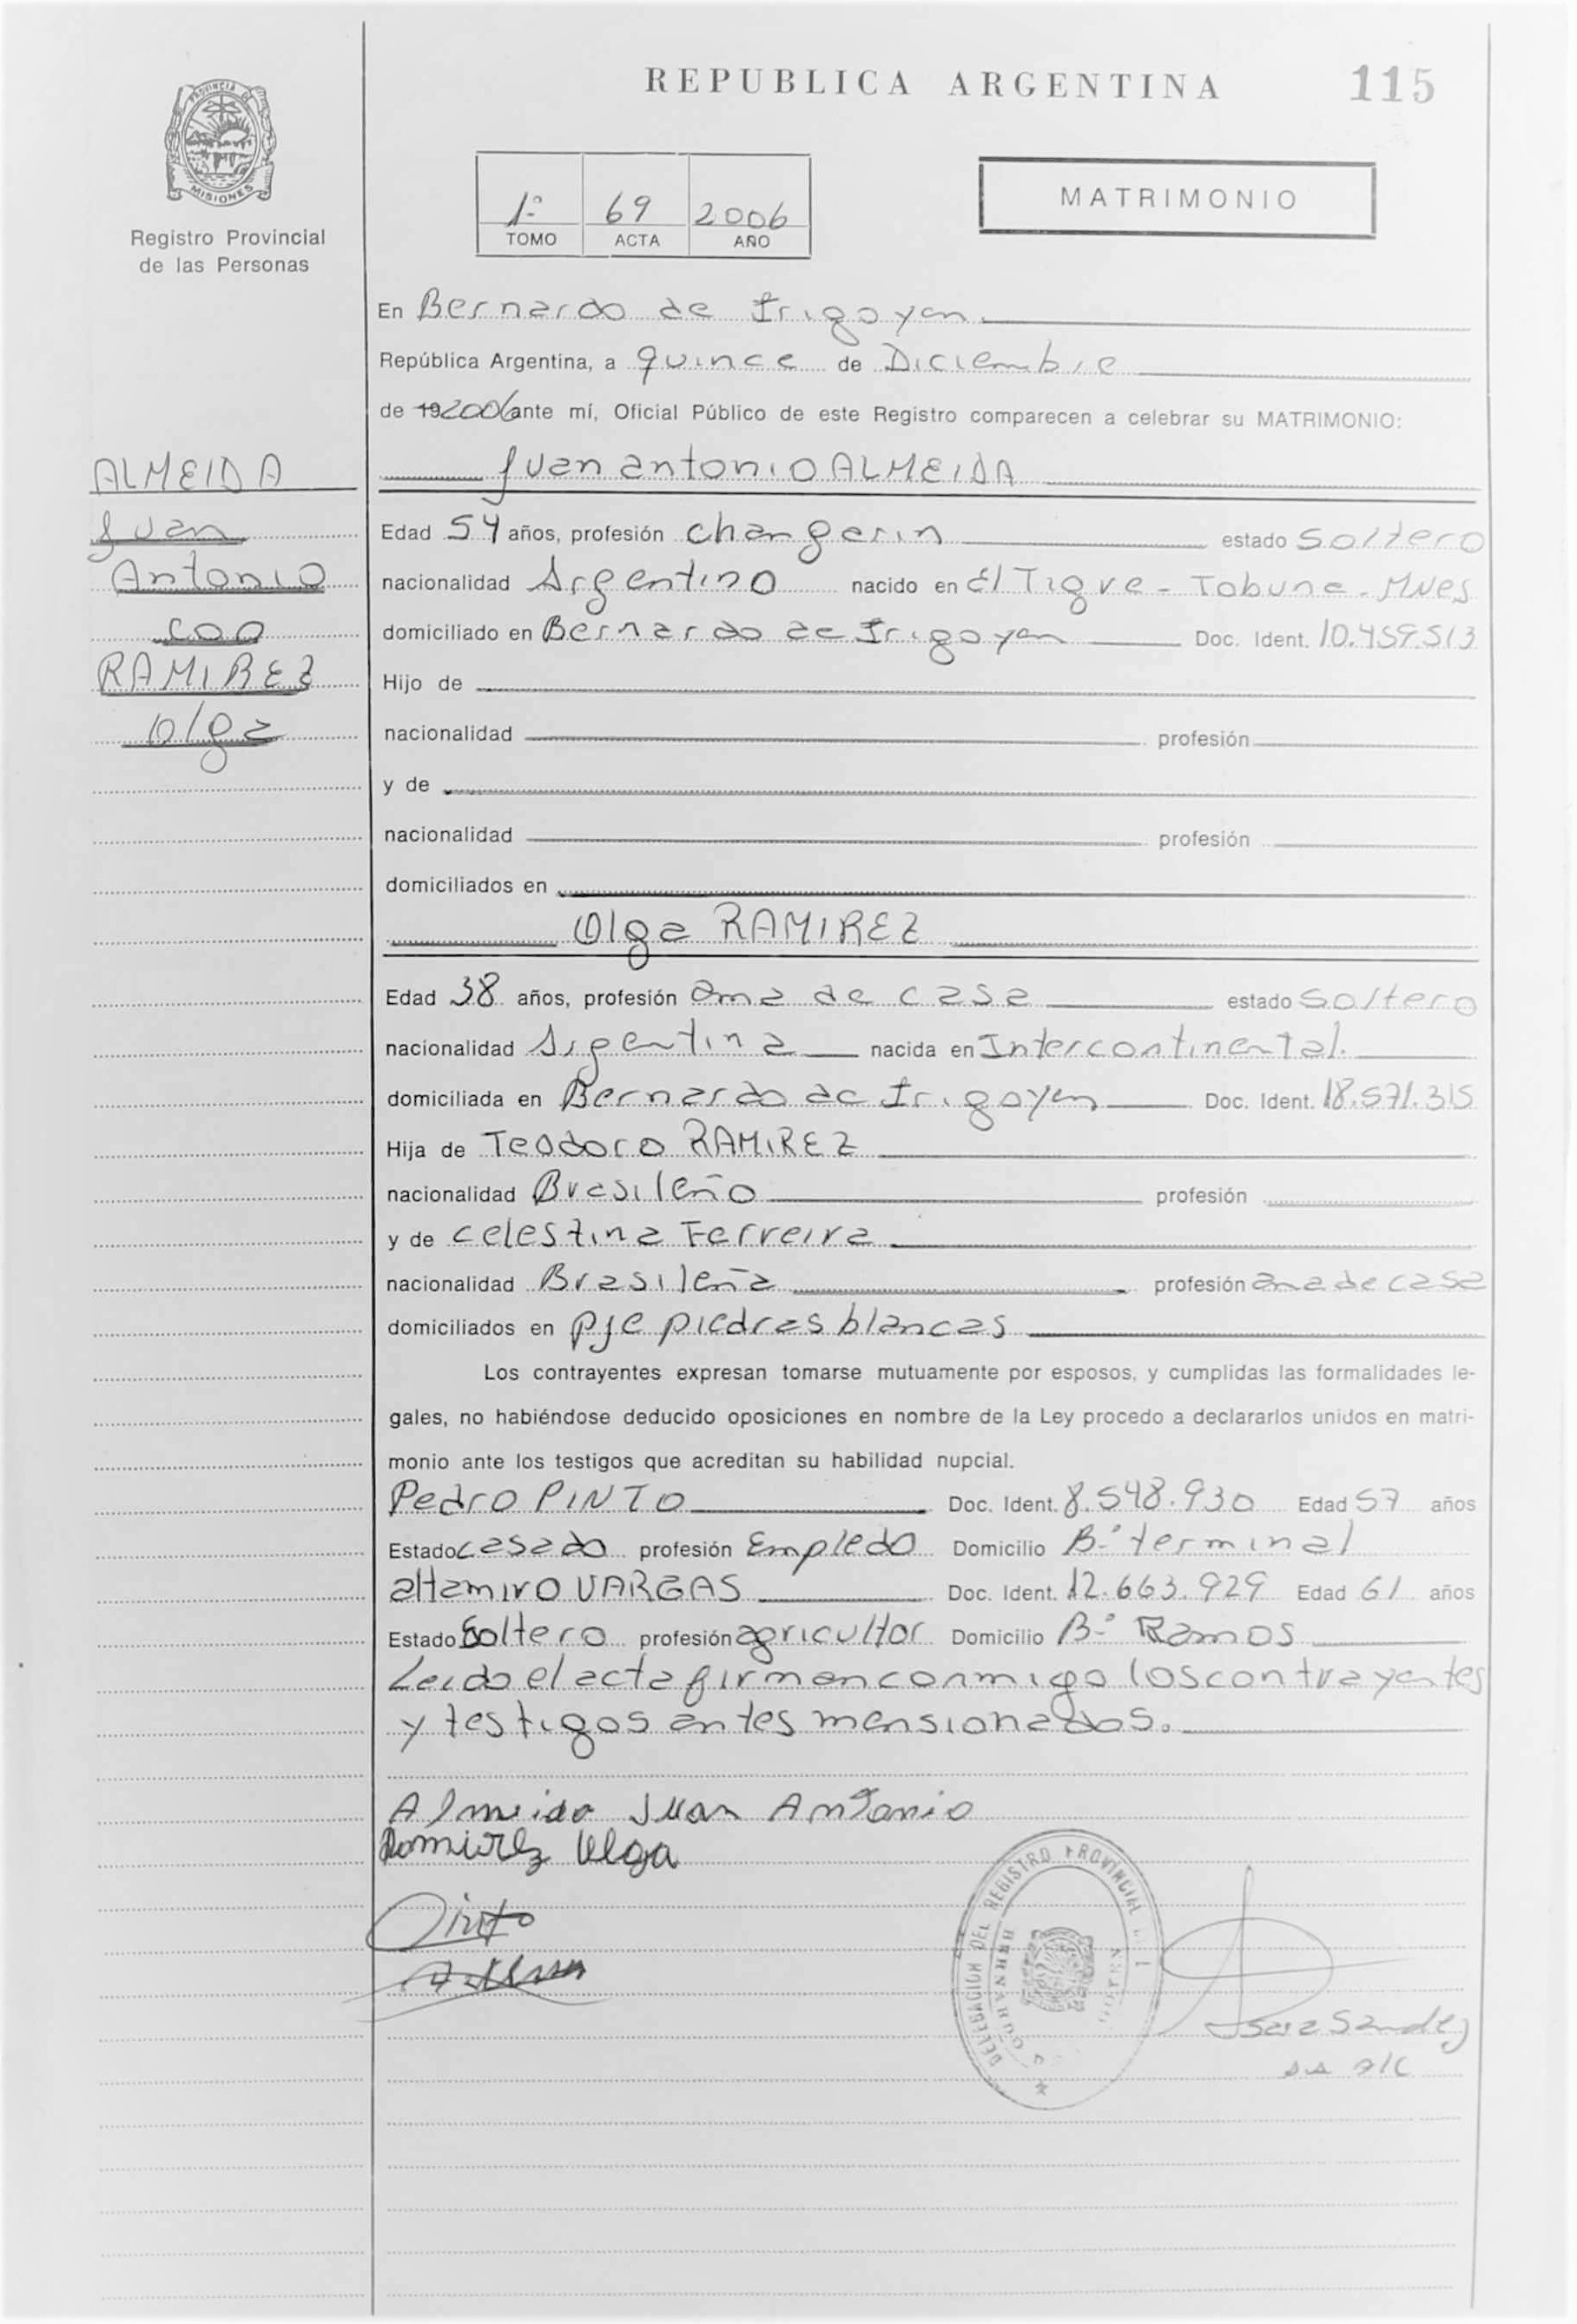 REPUBLICA ARGENTINA
115
PROVINCIA DE
MISIONES
Registro Provincial
de las Personas
1º 69 2006
TOMO ACTA AÑO
MATRIMONIO
En Bernardo de Irigoyen.
República Argentina, a quince de Diciembre
de 19 2006 ante mí, Oficial Público de este Registro comparecen a celebrar su MATRIMONIO:
ALMEIDA
Juan
Antonio
con
RAMIREZ
Olga
Juan antonio ALMEIDA
Edad 54 años, profesión changarin estado soltero
nacionalidad Argentino nacido en El Tigre - Tobuna - Mnes
domiciliado en Bernardo de Irigoyen Doc. Ident. 10.459.513
Hijo de
nacionalidad profesión
y de
nacionalidad profesión
domiciliados en
Olga RAMIREZ
Edad 38 años, profesión ama de casa estado soltero
nacionalidad Argentina nacida en Intercontinental.
domiciliada en Bernardo de Irigoyen Doc. Ident. 18.571.315
Hija de Teodoro RAMIREZ
nacionalidad Brasileño profesión
y de celestina Ferreira
nacionalidad Brasileña profesión ama de casa
domiciliados en pje piedras blancas
Los contrayentes expresan tomarse mutuamente por esposos, y cumplidas las formalidades le-
gales, no habiéndose deducido oposiciones en nombre de la Ley procedo a declararlos unidos en matri-
monio ante los testigos que acreditan su habilidad nupcial.
Pedro PINTO Doc. Ident. 8.548.930 Edad 57 años
Estado casado profesión Empledo Domicilio Bº terminal
altamiro VARGAS Doc. Ident. 12.663.929 Edad 61 años
Estado soltero profesión agricultor Domicilio Bº Ramos
Leido el acta firman conmigo los contrayentes
y testigos antes mensionados.
Almeida Juan Antonio
Ramirez Olga
Pinto
DELEGACION DEL REGISTRO PROVINCIAL